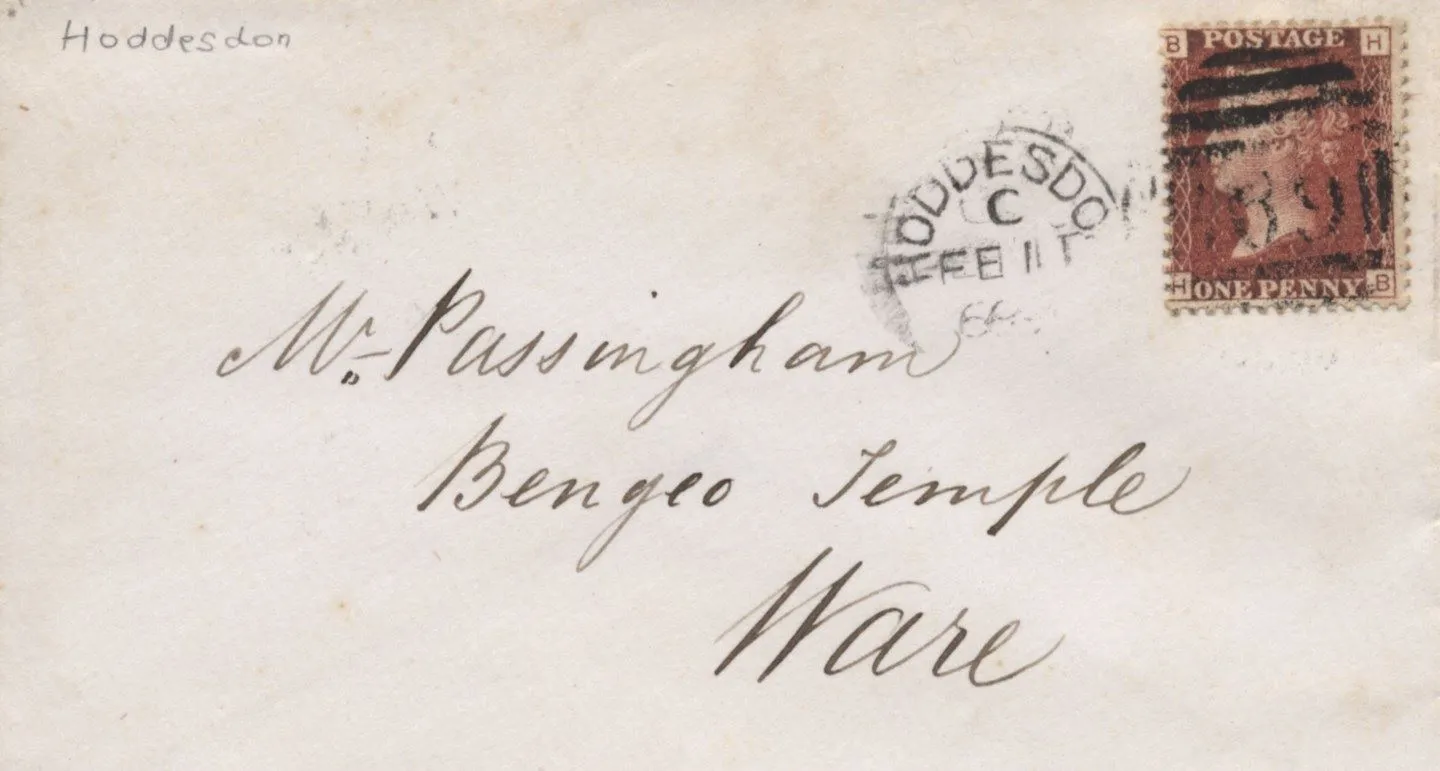 Hoddesdon
B POSTAGE H
HODDESDO
C
FE 11
66
H ONE PENNY B
Mr Passingham
Bengeo Temple
Ware